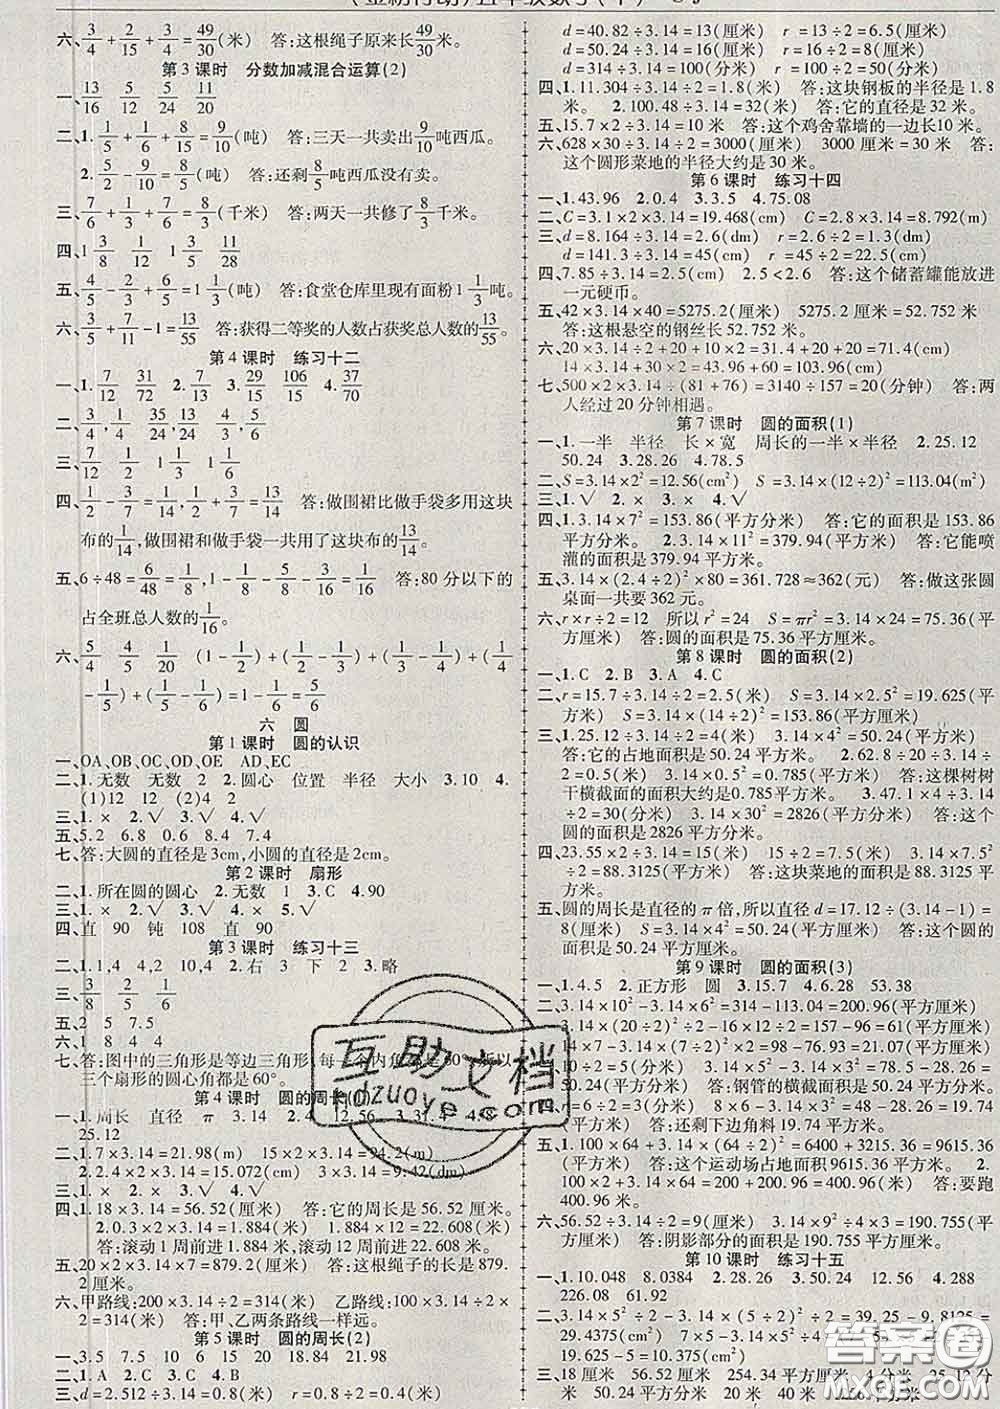 六、3/4+2/15+3/10=49/30(米) 答:这根绳子原来长49/30米。
第3课时 分数加减混合运算(2)
一、13/16 5/12 5/24 11/20
二、1.1/5+1/6+8/15=9/10(吨) 答:三天一共卖出9/10吨西瓜。
2.5/2-9/10=8/5(吨) 答:还剩8/5吨西瓜没有卖。
三、7/6+1/3+7/6=8/3(千米) 答:两天一共修了8/3千米。
四、1 3/8 1/8 13/35 11/28
五、8/5-2/3+2/5=1 1/3(吨) 答:食堂仓库里现有面粉1 1/3吨。
六、3/5+7/11-1=13/55 答:获得二等奖的人数占获奖总人数的13/55
第4课时 练习十二
一、1.7/12 31/72 2.7/13 3.29/15 106/15 4.37/70
二、3/4,1/4 35/24,13/24 3/4,5/6
三、7/12 1/3 1 1/3 1/6
四、1/2-3/7=1/14,1/2+3/7=13/14 答:做围裙比做手袋多用这块
布的1/14,做围裙和做手袋一共用了这块布的13/14。
五、6÷48=6/48=1/8,1-1/8-5/8-3/16=1/16 答:80分以下的
占全班总人数的1/16。
六、5/4 4/5 1/20 (1-1/2)+(1/2-1/3)+(1/3-1/4)+(1/4-
1/5)+(1/5-1/6)=1-1/6=5/6
六 圆
第1课时 圆的认识
一、OA、OB、OC、OD、OE AD、EC
二、1.无数 无数 2 2.圆心 位置 半径 大小 3.10 4.
(1)12 12 (2)4 2
三、1.× 2.√ 3.× 4.√
五、5.2 6.8 0.6 8.4 7.4
七、答:大圆的直径是3cm,小圆的直径是2cm。
第2课时 扇形
二、1.所在圆的圆心 2.无数 1 3.C 4.90
三、1.× 2.√ 3.√ 4.×
四、直 90 钝 108 直 90
第3课时 练习十三
二、1.1,4 4,2 10,4 2.右 3 下 2 3.略
三、3/8 2/5 1/4 1/4
五、2 5 7.5
六、1 8 4 4
七、答:图中的三角形是等边三角形,每一个内角都是60°,所以
三个扇形的圆心角都是60°。
第4课时 圆的周长(1)
一、1.周长 直径 π 3.14 2.4 12.56 3.3.14 4.8
25.12
二、1.7×3.14=21.98(m) 15×2×3.14=94.2(m)
2.2.4×2×3.14 3×3.14=9.42(dm)
三、1.× 2.× 3.√ 4.√
四、1.18×3.14=56.52(厘米) 答:它的周长是56.52厘米。
2.0.3×2×3.14=1.884(米) 1.884×12=22.608(米)
答:滚动1周前进1.884米,滚动12周前进22.608米。
五、20×2×3.14×7=879.2(厘米) 答:这根绳子的长是879.
2厘米。
六、甲路线:200×3.14÷2=314(米) 乙路线:100×3.14÷2
×2=314(米) 答:甲、乙两条路线一样远。
第5课时 圆的周长(2)
一、3.5 7.5 6 10 15 20 20 30
二、1.A 2.C 3.C 4.C
三、d=2.512÷3.14=0.8(米) r=0.8÷2=0.4(米)
d=40.82÷3.14=13(厘米) r=13÷2=6.5(厘米)
d=50.24÷3.14=16(厘米) r=16÷2=8(厘米)
d=314÷3.14=100(分米) r=100÷2=50(分米)
四、1.11.304÷3.14÷2=1.8(米) 答:这块钢板的半径是1.8
米。 2.100.48÷3.14=32(米) 答:它的直径是32米。
五、15.7×2÷3.14=10米 答:这个鸡舍靠墙的一边长10米。
六、628×30÷3.14÷2=3000(厘米) 3000厘米=30米 答:
这个圆形菜地的半径大约是30米。
第6课时 练习十四
一、1.43.96 2.0.4 3.3.5 4.75.08
二、C=3.1×2×3.14=19.468(cm) C=2.8×3.14=8.792(m)
三、d=8.164÷3.14=2.6(dm) r=2.6÷2=1.3(dm)
d=141.3÷3.14=45(cm) r=45÷2=22.5(cm)
四、7.85÷3.14=2.5(cm) 2.5<2.6 答:这个储蓄罐能放进
一元硬币。
五、42×3.14×40=5275.2(厘米) 5275.2厘米=52.752米
答:这根悬空的钢丝长52.752米。
六、20×3.14÷2+20×2=31.4+40=71.4(厘米)
14×3.14+30×2=43.96+60=103.96(厘米)
七、500×2×3.14÷(81+76)=3140÷157=20(分钟) 答:两
人经过20分钟相遇。
第7课时 圆的面积(1)
一、1.一半 半径 长×宽 周长的一半×半径 2.25.12
50.24 3.28.26 4.78.5
二、S=3.14×2²=12.56(cm²) S=3.14×(12÷2)²=113.04(m²)
三、1.√ 2.× 3.× 4.√
四、1.3.14×7²=153.86(平方分米) 答:它的面积是153.86
平方分米。 2.3.14×11²=379.94(平方米) 答:它能喷
灌的面积是379.94平方米。
五、3.14×(2.4÷2)²×80=361.728≈362(元) 答:做这张圆
桌面一共要362元。
六、r×r÷2=12 所以r²=24 S=πr²=3.14×24=75.36(平
方厘米) 答:圆的面积是75.36平方厘米。
第8课时 圆的面积(2)
一、1.C 2.B 3.A 4.C
二、r=15.7÷3.14÷2=2.5(米) S=3.14×2.5²=19.625(平
方米) S=3.14×(14÷2)²=153.86(平方厘米)
三、1.25.12÷3.14÷2=4(米) 3.14×4²=50.24(平方米)
答:它的占地面积是50.24平方米。 2.62.8÷20÷3.14
÷2=0.5(米) 3.14×0.5²=0.785(平方米) 答:这棵树树
干横截面的面积大约是0.785平方米。 3.47.1×4÷3.14
÷2=30(分米) 3.14×30²=2826(平方分米) 答:这个
圆的面积是2826平方分米。
四、23.55×2÷3.14=15(米) 15÷2=7.5(米) 3.14×7.5²
÷2=88.3125(平方米) 答:这块菜地的面积是88.3125平
方米。
五、圆的周长是直径的π倍,所以直径d=17.12÷(3.14-1)=
8(厘米) 3.14×(8÷2)²=50.24(平方厘米) 答:这个圆
的面积是50.24平方厘米。
第9课时 圆的面积(3)
一、1.4.5 2.正方形 圆 3.15.7 4.6.28 53.38
二、3.14×10²-3.14×6²=314-113.04=200.96(平方厘米)
3.14×(20÷2)²÷2-16×12÷2=157-96=61(平方厘米)
14×7-3.14×(14÷2)²÷2=
答:钢管的横截面的面积是
=6÷2=3(厘米) 8×6-3.14×3²=48-28.26=19.74
(平方厘米) 答:还剩下边角料19.74平方厘米。
五、1.100×64+3.14×(64÷2)²=6400+3215.36=9615.36
(平方米) 答:这个运动场占地面积9615.36平方米。 2.
100×2+3.14×64=200+200.96=400.96(米) 答:要跑
400.96米。
六、56.52÷3.14÷2=9(厘米) 3.14×9²×3/4=190.755(平
方厘米) 答:阴影部分的面积是190.755平方厘米。
第10课时 练习十五
一、1.10.048 8.0384 2.28.26 3.50.24 12.56 4.288
226.08 61.92
二、3.14×5²÷2-3.14×(5÷2)²÷2=39.25-9.8125=
29.4375(cm²) 7×5
三、18厘米 56.52厘米 254.34平方厘米 4厘米 25.12
厘米 50.24平方厘米 20米 40米
互助文档
hdzuoye.com
答案圈
MXQE.COM